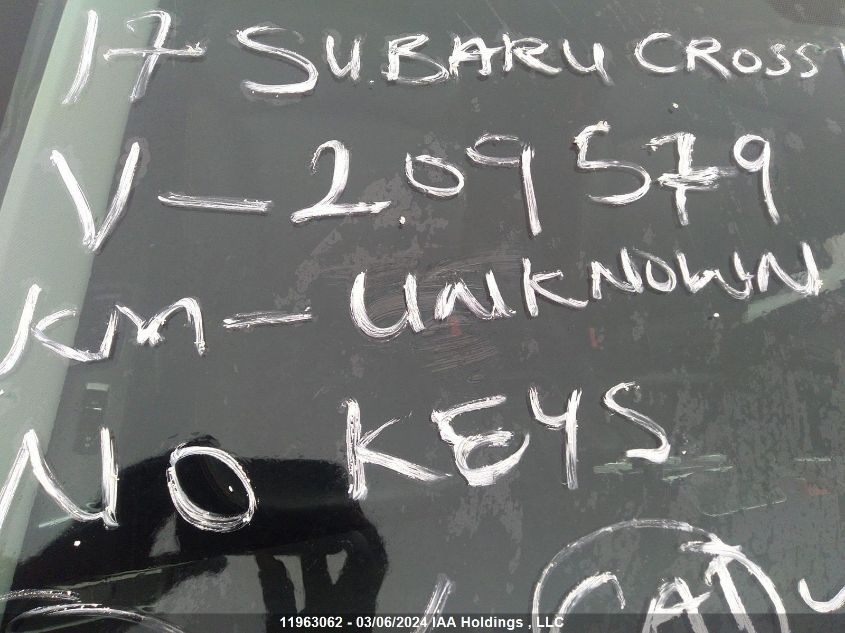 17 SUBARU CROSS
V-209579
KM-UNKNOWN
NO KEYS
CAT
11963062 - 03/06/2024 IAA Holdings , LLC